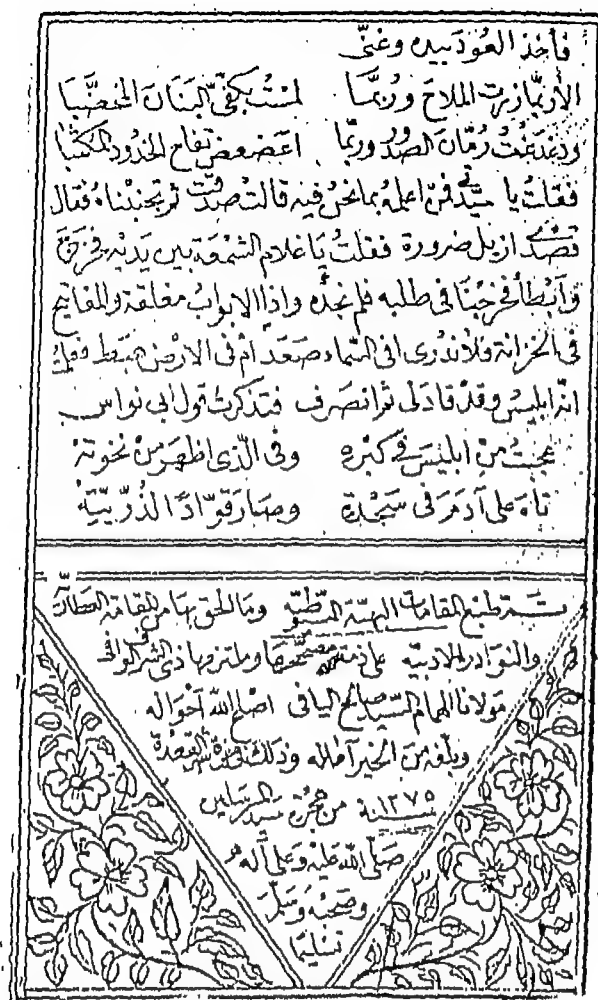 فأخذ العود بيده وغنّى
الأربّما زرت الملاح وربّما لمست بكفّي البنان المخضّبا
ودغدغت رمّان الصدور وربّما اعضعض تفاح الخدود المكتّبا
فقلت يا سيّدتي فمن اعمله بما نحن فيه قالت صدقت ثم تجنبناه فقال
قصدى ازيل ضرورة فقلت يا غلام الشمعة بين يديه فخرج
وأبطأ فخرجنا فى طلبه فلم نجده واذا الابواب مغلقة والمفاتيح
فى الخزانة فلا ندرى افى السّماء صعد أم فى الارض هبط فعلمت
انّه ابليس وقد قاد لى ثم انصرف فتذكرت قول ابى نواس
عجبت من ابليس فى كبره وفى الّذى اظهر من نخوته
تاه على آدم فى سجدة وصار قوّادًا لذرّيّته
تم طبع المقامات البهيّة السيوطيّه وما الحق بها من المقامة
والنوادر الادبيّه على ذمة مصححها وملتزمها ذى الشرف الوافى
مولانا الهمام السيد صالح اليافى اصلح اللّه احواله
وبلغه من الخير آماله وذلك فى غرة شهر القعدة
سنة ١٢٧٥ من هجرة سيد المرسلين
صلّى اللّه عليه وعلى آله
وصحبه وسلّم
تسليما